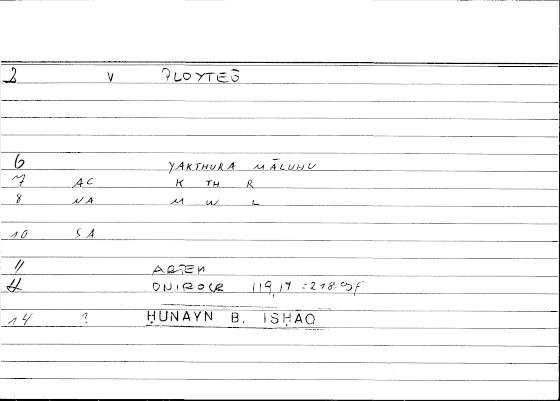 2 V PLOYTEŌ
6 YAKTHURA MĀLUHU
7 AC K TH R
8 NA M W L
10 SA
11 ARTEM
ONIROCR 119,17
14 ? ḤUNAYN B. ISḤĀQ